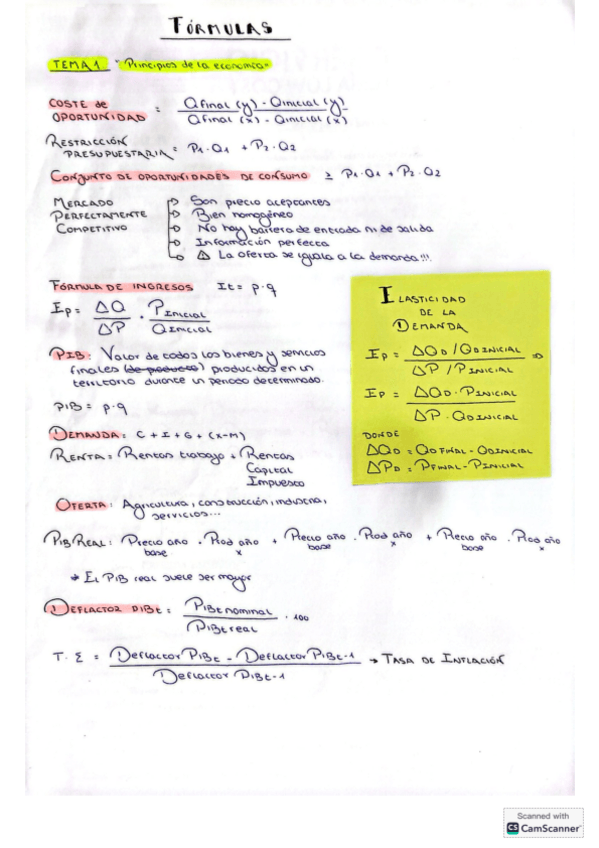 FÓRMULAS
TEMA 1 "Principios de la economía"
COSTE de OPORTUNIDAD = Qfinal (y) - Qinicial (y) / Qfinal (x) - Qinicial (x)
RESTRICCIÓN PRESUPUESTARIA = P1 · Q1 + P2 · Q2
CONJUNTO DE OPORTUNIDADES DE CONSUMO ≥ P1 · Q1 + P2 · Q2
MERCADO PERFECTAMENTE COMPETITIVO
Son precio aceptantes
Bien homogéneo
No hay barrera de entrada ni de salida
Información perfecta
△ La oferta se iguala a la demanda!!!
FÓRMULA DE INGRESOS It = p · q
Ep = ΔQ / ΔP · PINICIAL / QINICIAL
PIB: Valor de todos los bienes y servicios
finales (de producto) producidos en un
territorio durante un periodo determinado.
PIB = p · q
DEMANDA: C + I + G + (X-M)
RENTA: Rentas trabajo + Rentas
Capital
Impuesto
OFERTA: Agricultura, construcción, industria,
servicios...
ELASTICIDAD
DE LA
DEMANDA
Ep = ΔQD / QDINICIAL / ΔP / PINICIAL ⇒
Ep = ΔQD · PINICIAL / ΔP · QDINICIAL
DONDE
ΔQD = QDFINAL - QDINICIAL
ΔPD = PFINAL - PINICIAL
PIB REAL: Precio año base · Prod año x + Precio año base · Prod año x + Precio año base · Prod año
* EL PIB real suele ser mayor
DEFLACTOR PIBt = PIBt nominal / PIBt real · 100
T. Σ = Deflactor PIBt - Deflactor PIBt-1 / Deflactor PIBt-1 → TASA DE INFLACIÓN
Scanned with
CS CamScanner